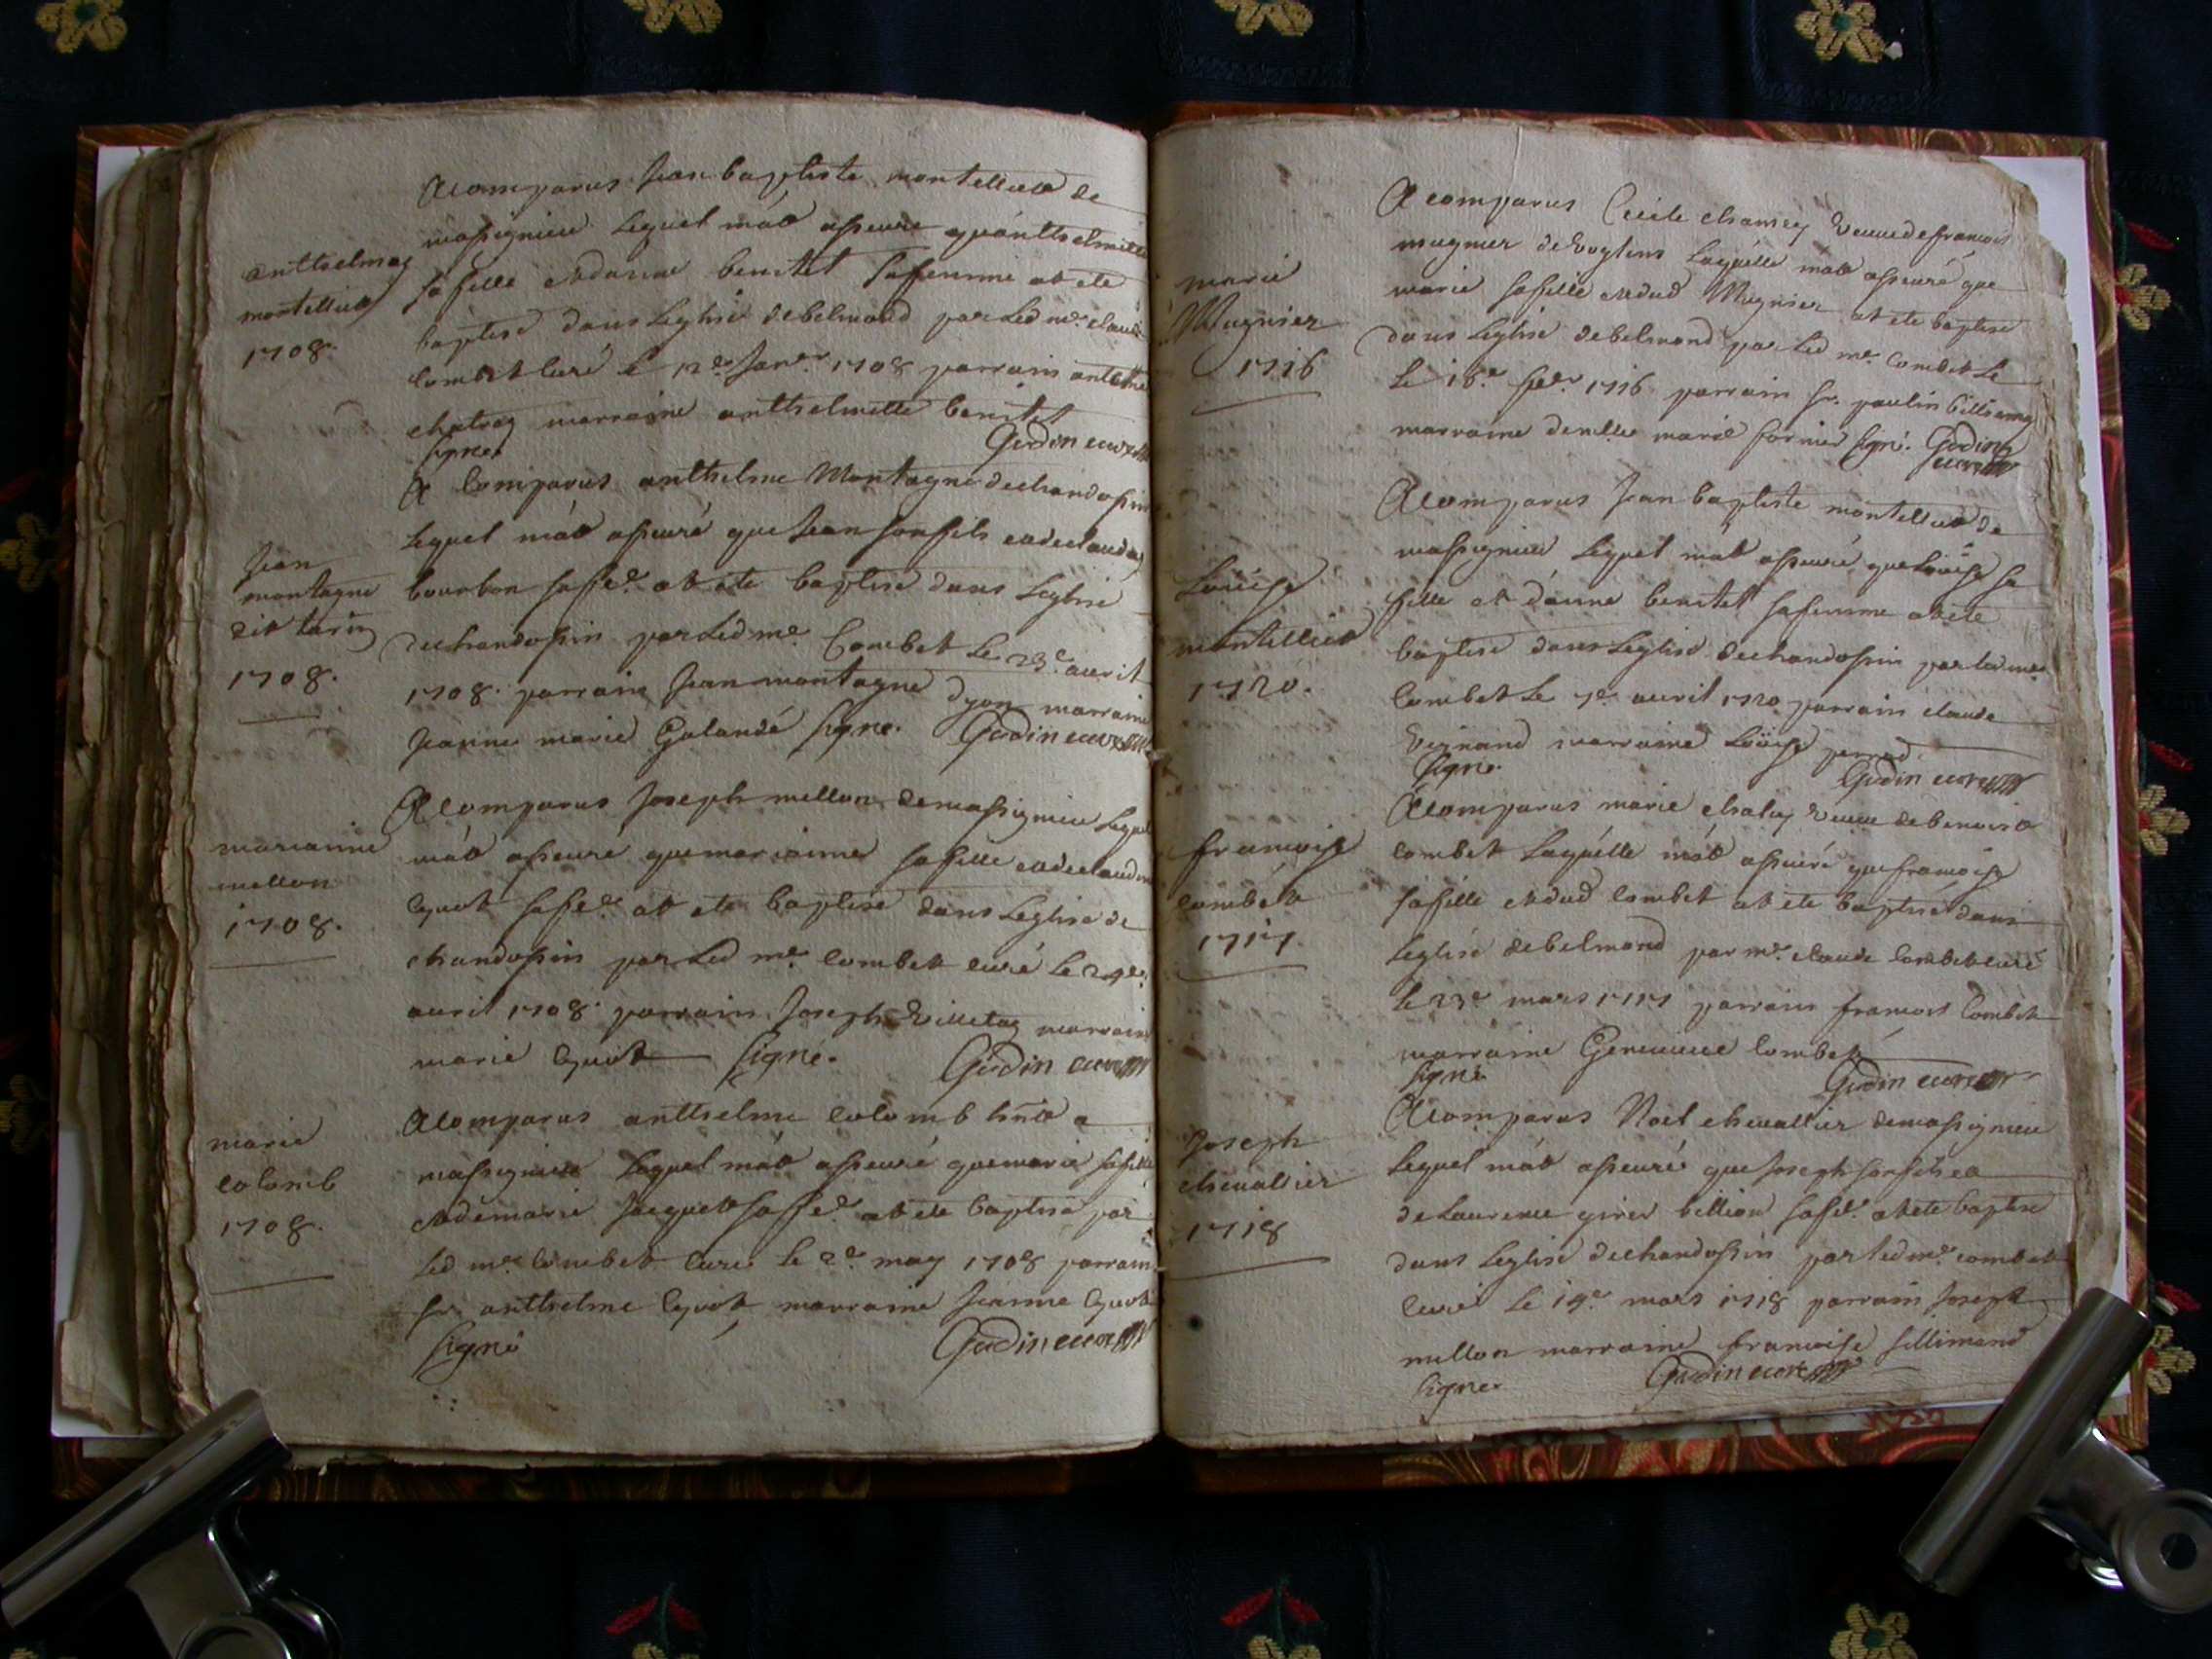 anthelmaz
montellier
1708.
A comparus Jean baptiste montellier de
massignieu lequel m'at asseuré qu'anthelmette
sa fille et danne benitet sa femme at ete
baptise dans Leglise de belmond par Led me. claude
Combet curé le 12e. Janer. 1708 parrain antelme
chatray marraine anthelmette benitet
signe. Gudin curé
Jean
montagne
dit tarin
1708.
A Comparus anthelme Montagne de chandossin
Lequel m'at asseuré que Jean son fils et de clauda
bourbon sa fe. at ete baptise dans Leglise
de chandossin par Led me. Combet Le 23e. avril
1708. parrain Jean montagne dyon marraine
Jeanne marie Galande signe. Gudin curé
marianne
mellon
1708.
A Comparus Joseph mellon de massignieu Lequel
m'at asseuré que marianne sa fille et de claudine
Cyvot sa fe. at ete baptise dans Leglise de
chandossin par Led me. Combet curé Le 24e.
avril 1708. parrain Joseph Villetaz marraine
marie Cyvot signé. Gudin curé
marie
colomb
1708.
A Comparus anthelme colomb a
massignieu Lequel m'at asseuré que marie sa fille
et de marie Jacquet sa fe. at ete baptise par
Led me. Combet Curé le 2e. may 1708 parrain
sr. anthelme Cyvot marraine Jeanne Cyvot
signé Gudin curé
marie
Mugnier
1716
A comparus Cecile chamey Veuve de francois
mugnier de Voglens Laquelle m'at asseuré que
marie sa fille et dud Mugnier at ete baptise
dans Leglise de belmond par Led me. Combet Le
Le 18e. 1716 parrain sr. paulin billiemaz
marraine demlle marie fornier signé. Gudin
curé
Loüise
montellier
1720.
A Comparus Jean baptiste montellier de
massignieu Lequel m'at asseuré que Loüise sa
fille et d'anne benitet sa femme at ete
baptise dans Leglise de chandossin par led me.
Combet Le 7e. avril 1720 parrain claude
Vernand marraine Loüise perrod
signe. Gudin curé
francoise
combet
1717
A Comparus marie chatay Veuve de benoist
Combet Laquelle m'at asseuré que francoise
sa fille et dud Combet at ete baptisé dans
Leglise de belmond par me. claude Combet curé
Le 23e mars 1717 parrain francois Combet
marraine Genevieve Combet
signé Gudin curé
Joseph
chevallier
1718
A Comparus Noel chevallier de massignieu
Lequel m'at asseuré que Joseph son fils et
de Laurence girer billion sa fe. at ete baptise
dans Leglise de chandossin par led me. combet
curé Le 19e. mars 1718 parrain Joseph
mellon marraine francoise sillimand
signe. Gudin curé